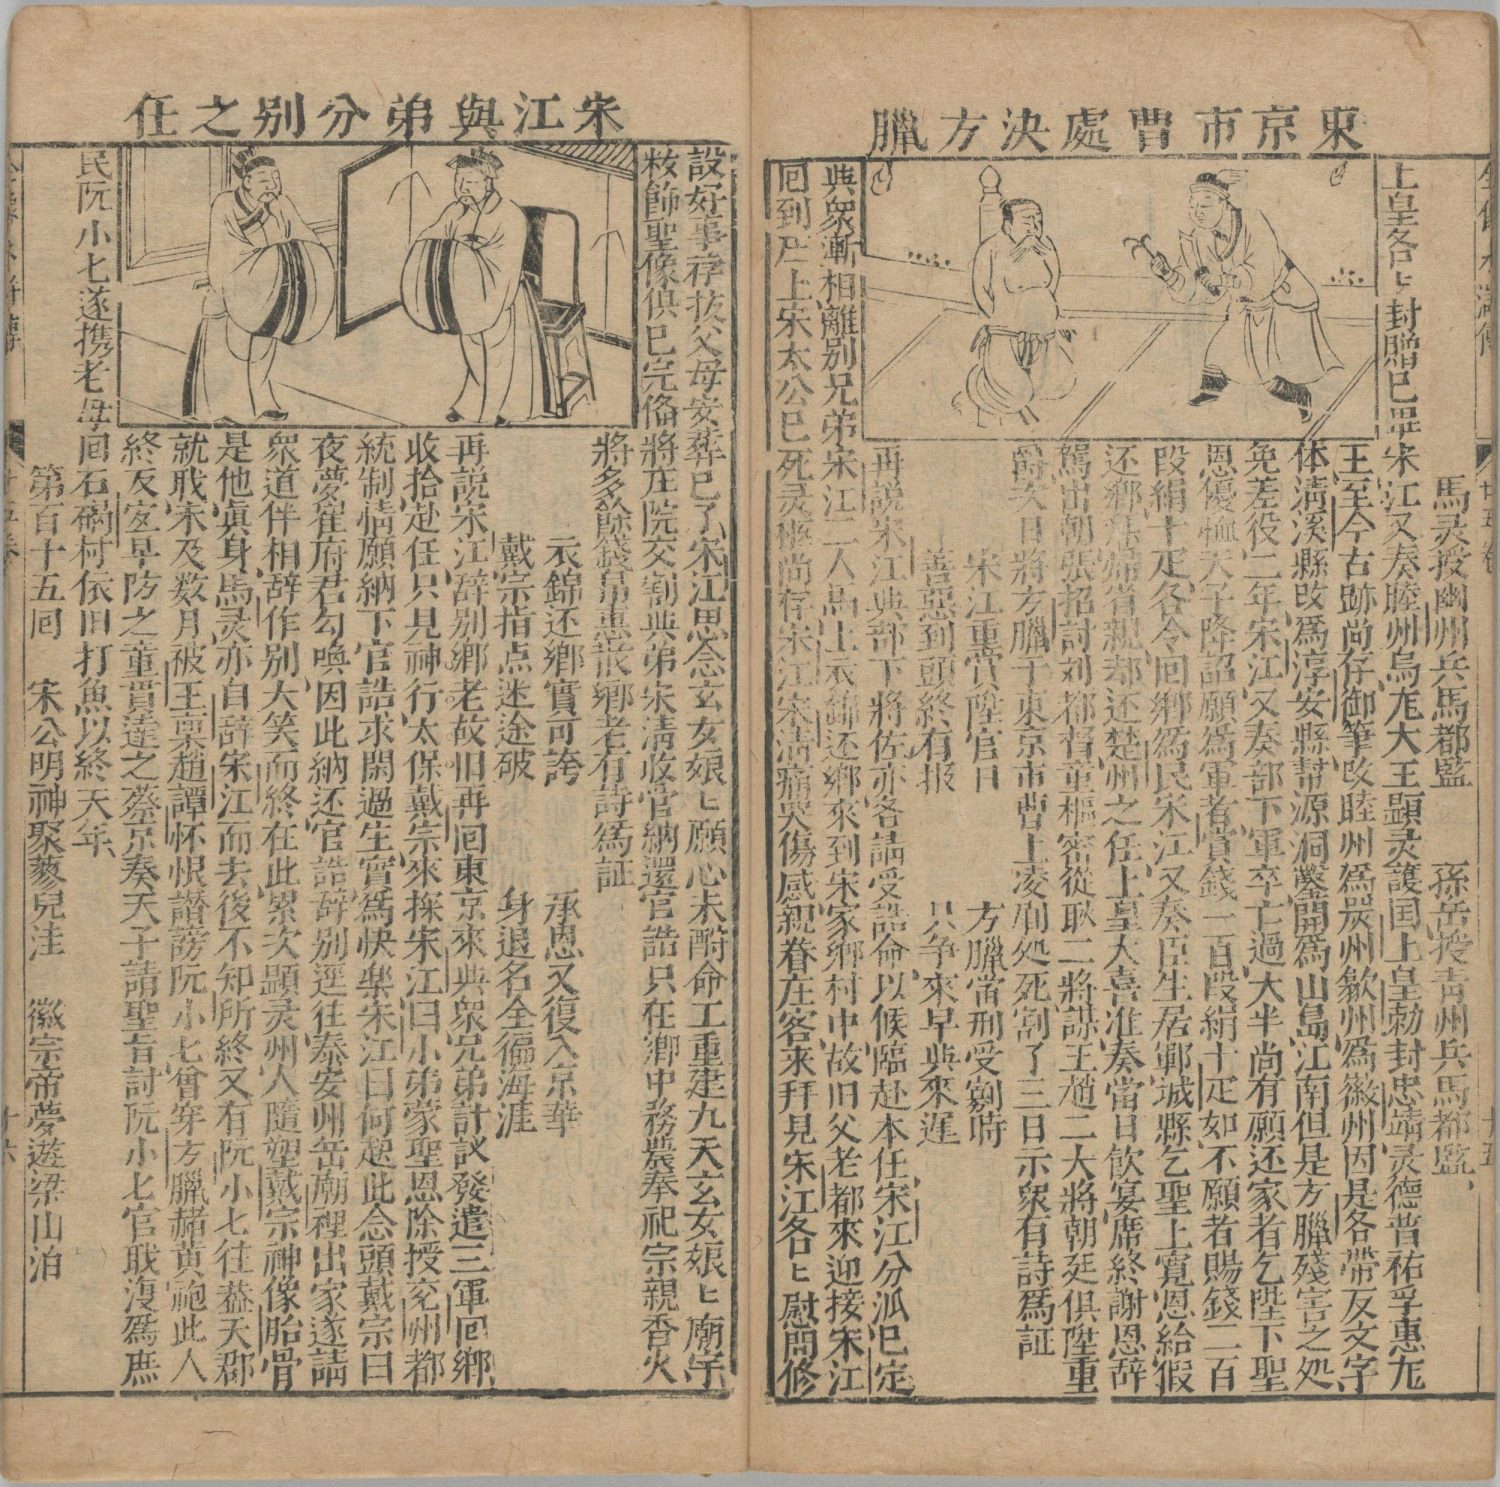 東京市曹處決方臘
馬灵授幽州兵馬都監　孫岳授青州兵馬都監、
上皇各匕封贈已畢宋江又奏睦州烏尨大王顯灵護国上皇勅封忠靖灵德普祐孚惠尨
王至今古跡尚存御筆改睦州為嚴州歙州為徽州因是各帶反文字
体淸溪縣改爲淳安縣幫源洞鑿開爲山島江南但是方臘殘害之処
免差役二年宋江又奏部下軍卒亡過大半尚有願还家者乞陛下聖
恩優恤天子降詔願爲軍者賞錢一百段絹十疋如不願者賜錢二百
段絹十疋各令囘鄉爲民宋江又奏臣生居鄆城縣乞聖上寬恩給假
还鄉拜掃省親却还楚州之任上皇大喜准奏當日飲宴席終謝恩辞
駕出朝張招討刘都督童樞密從耿二將謀王趙二大將朝廷俱陞重
爵次日將方臘于東京市曹上凌剮処死割了三日示衆有詩爲証
宋江重賞陞官日　方臘當刑受剮時
善惡到頭終有报　只爭來早與來遲
再説宋江與部下將佐亦各請受誥命以候臨赴本任宋江分派已定
與衆漸相離别兄弟宋江二人馬上衣錦还鄉來到宋家鄉村中故旧父老都來迎接宋江
囘到庄上宋太公已死灵柩尚存宋江宋淸痛哭傷感親眷庄客來拜見宋江各匕慰問修
宋江與弟分别之任
設好事存扶父母安葬已了宋江思念玄女娘匕願心未酧命工重建九天玄女娘匕廟宇
粧飾聖像俱已完俻將庄院交割與弟宋淸收管納還官誥只在鄉中務農奉祀宗親香火
將多餘錢帛惠散鄉老有詩爲証
衣錦还鄉實可誇　承恩又復入京華
戴宗指点迷途破　身退名全徧海涯
再説宋江辞别鄉老故旧再囘東京來與衆兄弟計議發遣三軍囘鄉
收拾赴任只見神行太保戴宗來探宋江曰小弟蒙聖恩除授兖州都
統制情願納下官誥求閑過生實爲快樂宋江曰何起此念頭戴宗曰
夜夢崔府君勾喚因此納还官誥辞别逕往泰安州岳廟裡出家遂請
衆道伴相辞作别大笑而終在此累次顯灵州人隨塑戴宗神像胎骨
是他眞身馬灵亦自辞宋江而去後不知所終又有阮小七往葢天郡
就戝未及数月被王稟趙譚怀恨譖謗阮小七曾穿方臘赭黃袍此人
終反宜早防之童貫達之蔡京奏天子請聖旨討阮小七官戝復爲庶
民阮小七遂携老母囘石碣村依旧打魚以終天年、
第百十五囘　宋公明神聚蓼兒洼　徽宗帝夢遊梁山泊